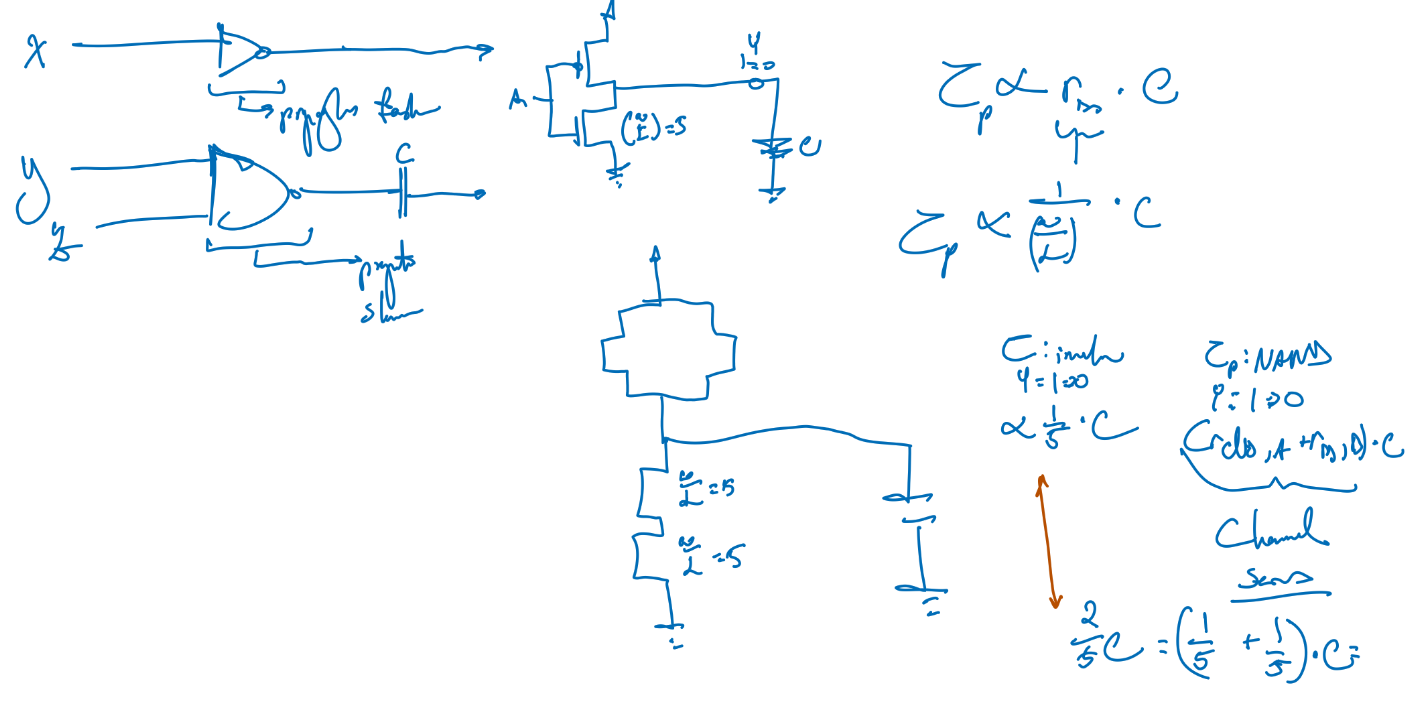 X
propagates fast
y
z
C
propagates
slow
A
Y
1→0
(W/L)=5
C
τp ∝ rds · C
τp ∝ 1/(W/L) · C
W/L=5
W/L=5
Y=1→0
∝ 1/5 · C
τp: NAND
Y=1→0
(rds,A + rds,B) · C
Channel
2/5 C = (1/5 + 1/5) · C =